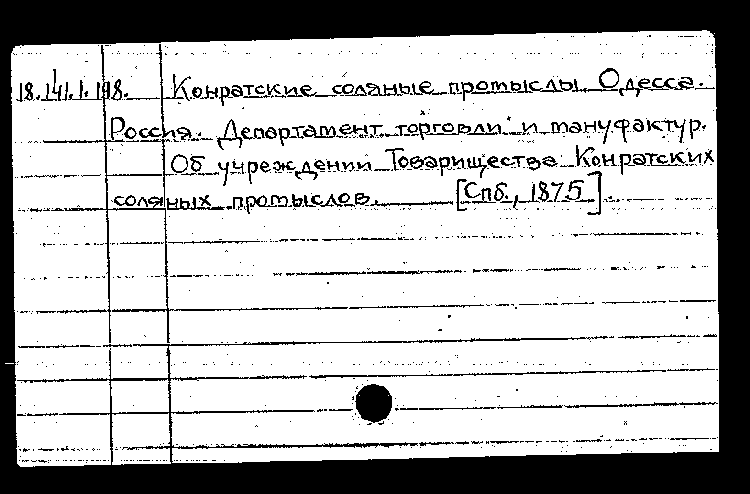 18.141.1.198. Конратские соляные промыслы. Одесса.
Россия. Департамент торговли и мануфактур.
Об учреждении Товарищества Конратских
соляных промыслов. [Спб., 1875].